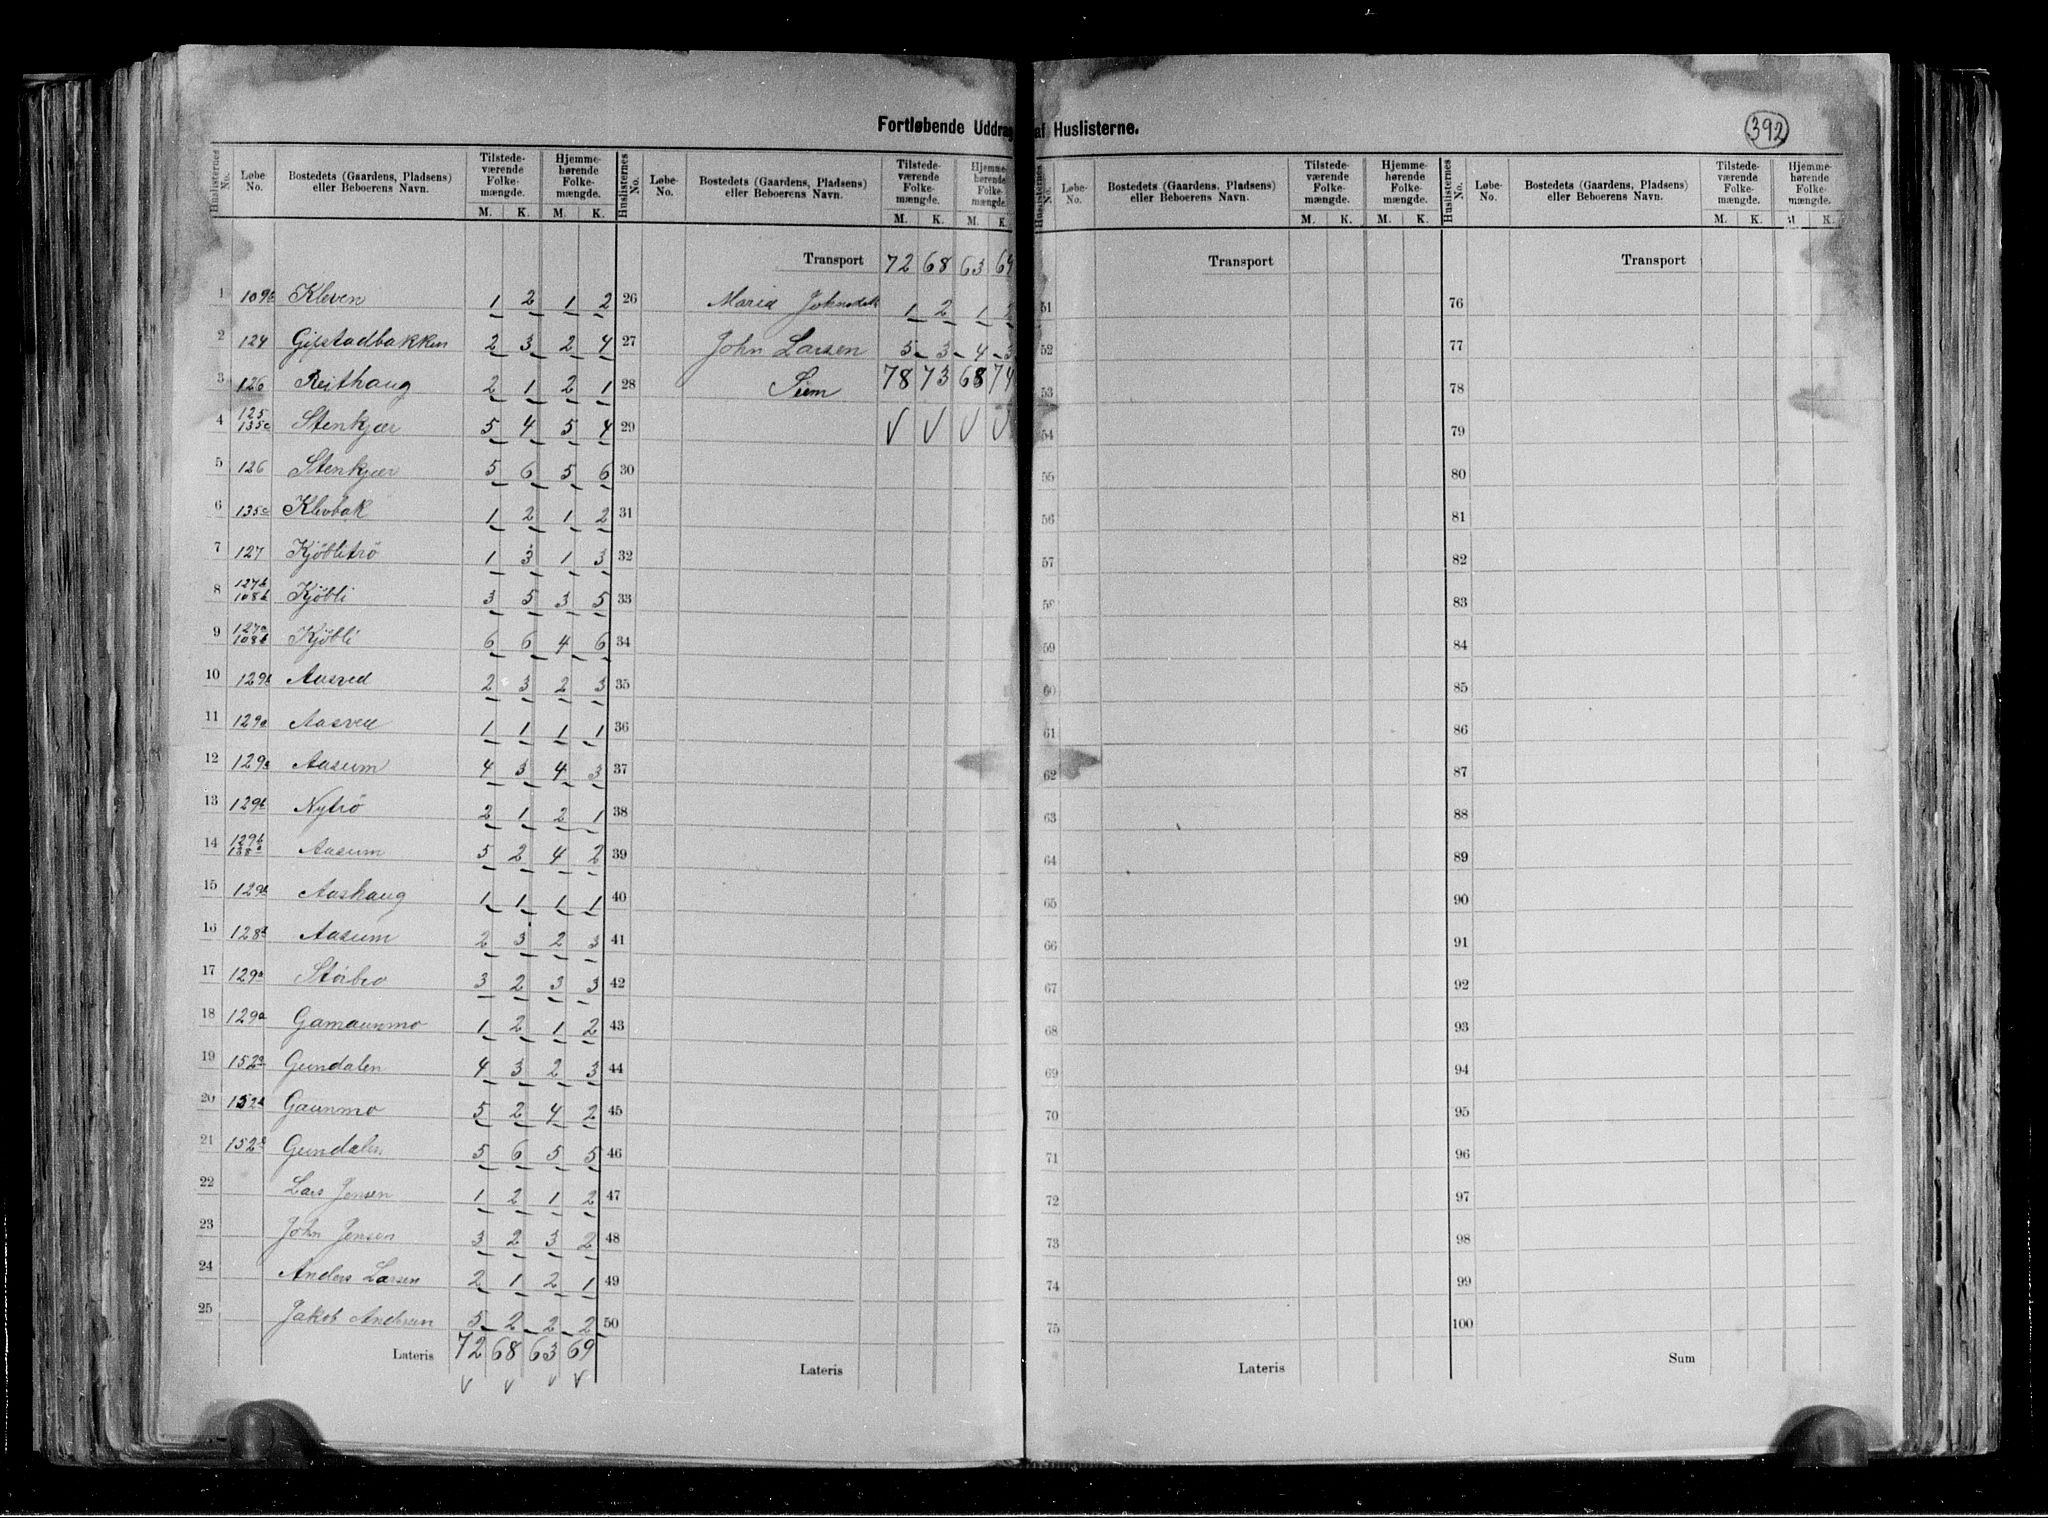 Fortløbende Uddrag af Huslisterne.
392
Huslisternes No. Løbe-No. Bostedets (Gaardens, Pladsens) eller Beboerens Navn. Tilstedeværende Folkemængde. M. K. Hjemmehørende Folkemængde. M. K.
1 109b Kleven 1 2 1 2
2 124 Gipstadbakken 2 3 2 4
3 126 Reithaug 2 1 2 1
4 125 135c Stenkjær 5 4 5 4
5 126 Stenkjær 5 6 5 6
6 135c Klevbak 1 2 1 2
7 127 Kjöblitrö 1 3 1 3
8 127b 108b Kjöbli 3 5 3 5
9 127a 108b Kjöbli 6 6 4 6
10 129b Aasved 2 3 2 3
11 129a Aasved 1 1 1 1
12 129a Aasum 4 3 4 3
13 129b Nytrö 2 1 2 1
14 129b 138a Aasum 5 2 4 2
15 129b Aashaug 1 1 1 1
16 128b Aasum 2 3 2 3
17 129a Störbro 3 2 3 3
18 129a Gamaunmo 1 2 1 2
19 152a Gundalen 4 3 2 3
20 152b Gaunmo 5 2 4 2
21 152a Gundalen 5 6 5 5
22 Lars Jensen 1 2 1 2
23 John Jensen 3 2 3 2
24 Anders Larsen 2 1 2 1
25 Jakob Andersen 5 2 2 2
Lateris 72 68 63 69
Huslisternes No. Løbe-No. Bostedets (Gaardens, Pladsens) eller Beboerens Navn. Tilstedeværende Folkemængde. M. K. Hjemmehørende Folkemængde. M. K.
Transport 72 68 63 69
26 Maria Johnsdtr 1 2 1 2
27 John Larsen 5 3 4 3
28 Sum 78 73 68 74
29
30
31
32
33
34
35
36
37
38
39
40
41
42
43
44
45
46
47
48
49
50
Lateris
Huslisternes No. Løbe-No. Bostedets (Gaardens, Pladsens) eller Beboerens Navn. Tilstedeværende Folkemængde. M. K. Hjemmehørende Folkemængde. M. K.
Transport
51
52
53
54
55
56
57
58
59
60
61
62
63
64
65
66
67
68
69
70
71
72
73
74
75
Lateris
Huslisternes No. Løbe-No. Bostedets (Gaardens, Pladsens) eller Beboerens Navn. Tilstedeværende Folkemængde. M. K. Hjemmehørende Folkemængde. M K.
Transport
76
77
78
79
80
81
82
83
84
85
86
87
88
89
90
91
92
93
94
95
96
97
98
99
100
Sum